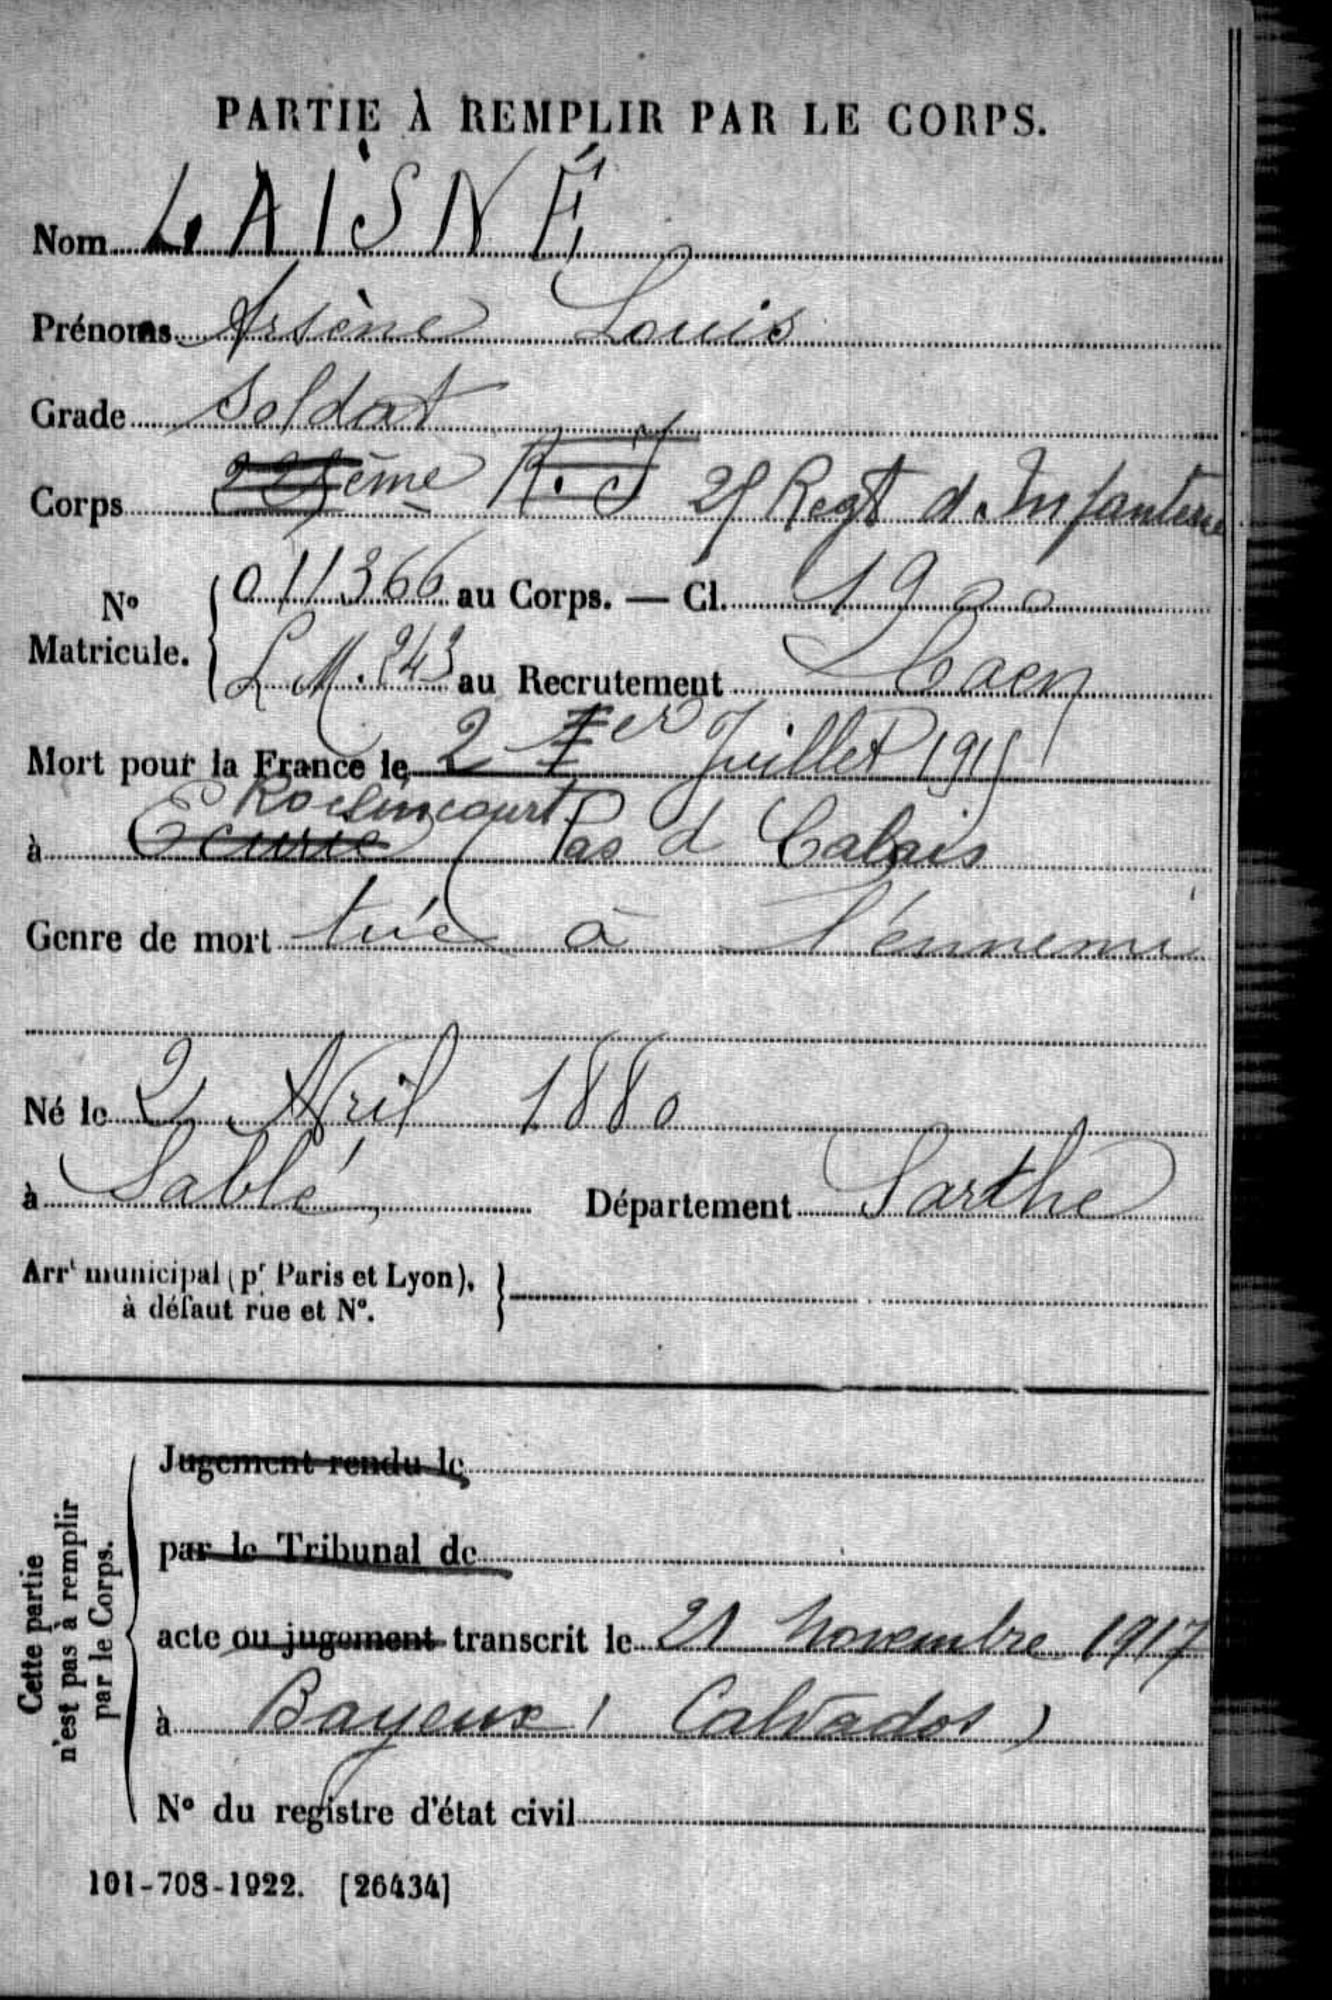 PARTIE À REMPLIR PAR LE CORPS.
Nom LAISNÉ
Prénoms Arsène Louis
Grade Soldat
Corps ème R.I 25 Regt d'Infanterie
N° Matricule. 011366 au Corps. — Cl. 1900
L M. 243 au Recrutement Caen
Mort pour la France le 2 1er Juillet 1915
Roclincourt
à Ecurie Pas d Calais
Genre de mort tué à l'ennemi
Né le 2 Avril 1880
à Sablé, Département Sarthe
Arrt municipal (pr Paris et Lyon),
à défaut rue et N°.
Cette partie
n'est pas à remplir
par le Corps.
Jugement rendu le
par le Tribunal de
acte ou jugement transcrit le 21 Novembre 1917
à Bayeux (Calvados)
N° du registre d'état civil
101-708-1922. [26434]